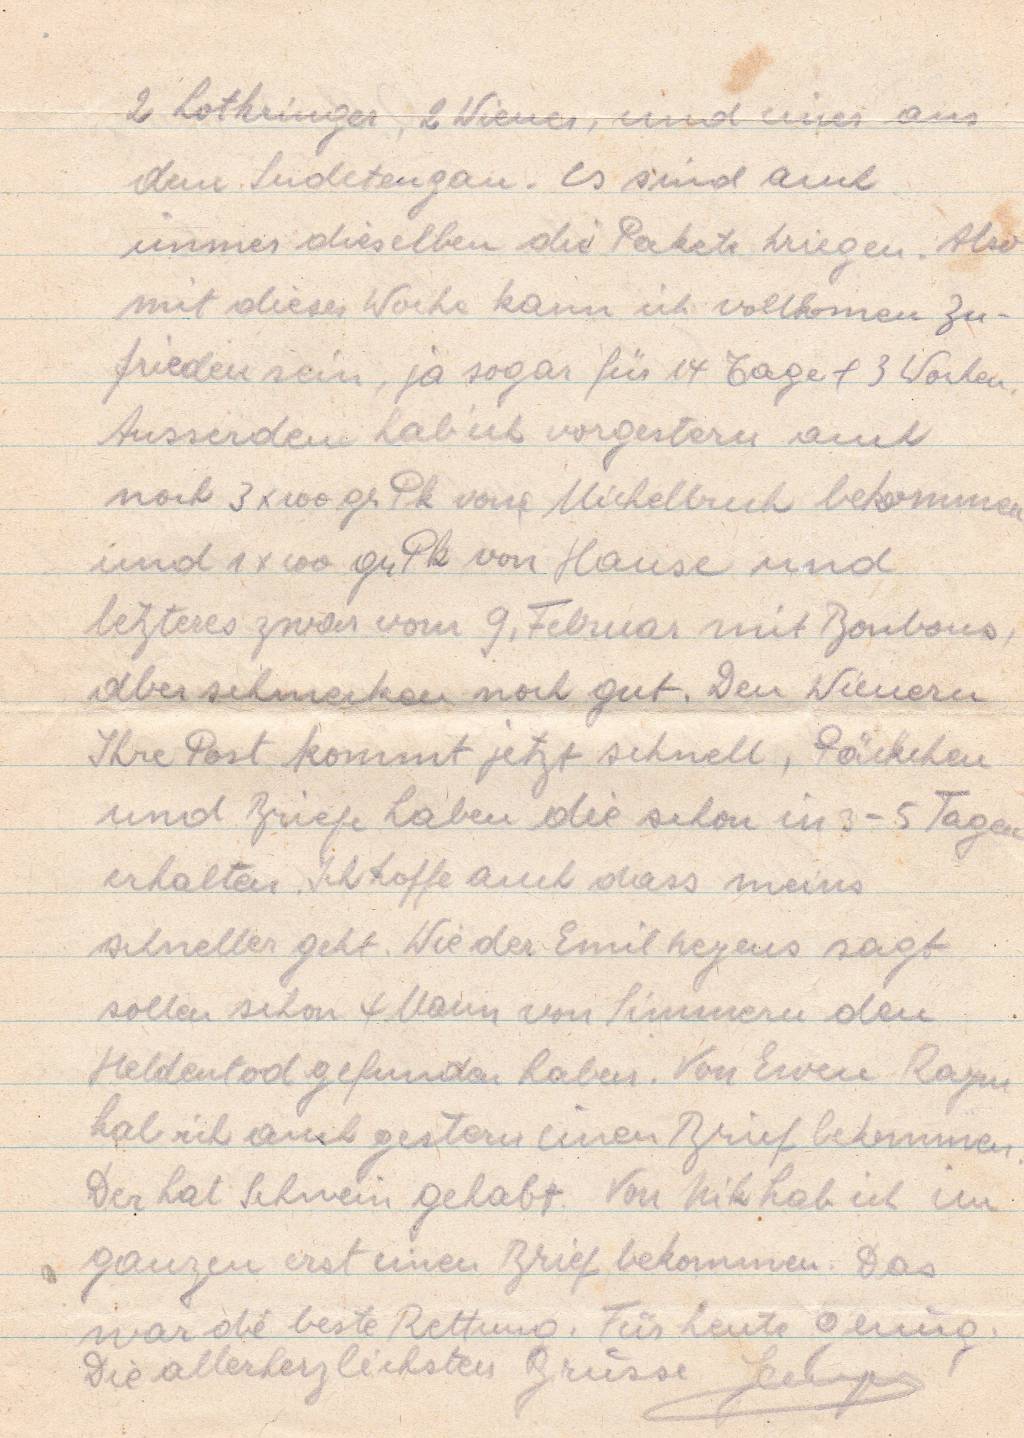 2 Lothringer, 2 Wiener, und einer aus
dem Sudetengau. Es sind auch
immer dieselben die Pakete kriegen. Also
mit dieser Woche kann ich vollkomen zu-
frieden sein, ja sogar für 14 Tage + 3 Wochen.
Ausserdem hab ich vorgestern auch
noch 3 x 100 gr Pk vom Michelbuch bekommen
und 1 x 100 gr Pk von Hause und
letzteres zwar vom 9. Februar mit Bonbons,
aber schmecken noch gut. Den Wienern
Ihre Post kommt jetzt schnell, Päckchen
und Briefe haben die schon in 3-5 Tagen
erhalten. Ich hoffe auch dass meins
schneller geht. Wie der Emil sagt
sollen schon 4 Mann von Simmern den
Heldentod gefunden haben. Von Ewen
hab ich auch gestern einen Brief bekommen.
Der hat Schwein gehabt. Von Nik hab ich im
ganzen erst einen Brief bekommen. Das
war die beste Rettung. Für heute genug.
Die allerherzlichsten Grüsse